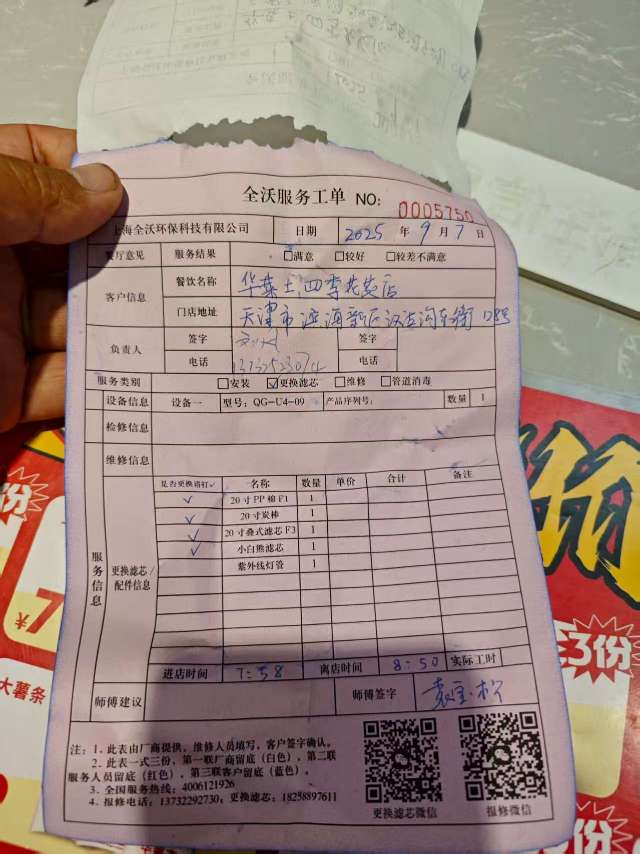 全沃服务工单 NO: 0005750
上海全沃环保科技有限公司 日期 2025 年 9 月 7 日
餐厅意见 服务结果 □满意 □较好 □较差不满意
客户信息 餐饮名称 华莱士四季花苑店
门店地址 天津市滨海新区汉沽
负责人 签字 签字
电话 电话
服务类别 □安装 ☑更换滤芯 □维修 □管道消毒
设备信息 设备一 型号: QG-U4-09 产品序列号: 数量 1
检修信息
维修信息
服务信息
更换滤芯/配件信息
是否更换请打✓ 名称 数量 单价 合计 备注
✓ 20寸PP棉F1 1
✓ 20寸炭棒 1
✓ 20寸叠式滤芯F3 1
✓ 小白熊滤芯 1
紫外线灯管 1
进店时间 7:58 离店时间 8:50 实际工时
师傅建议 师傅签字
注: 1. 此表由厂商提供, 维修人员填写, 客户签字确认。
2. 此表一式三份, 第一联厂商留底(白色), 第二联
服务人员留底(红色), 第三联客户留底(蓝色)。
3. 全国服务热线: 4006121926
4. 报修电话: 13732292730; 更换滤芯: 18258897611
更换滤芯微信 报修微信
份
¥7
大薯条
3份